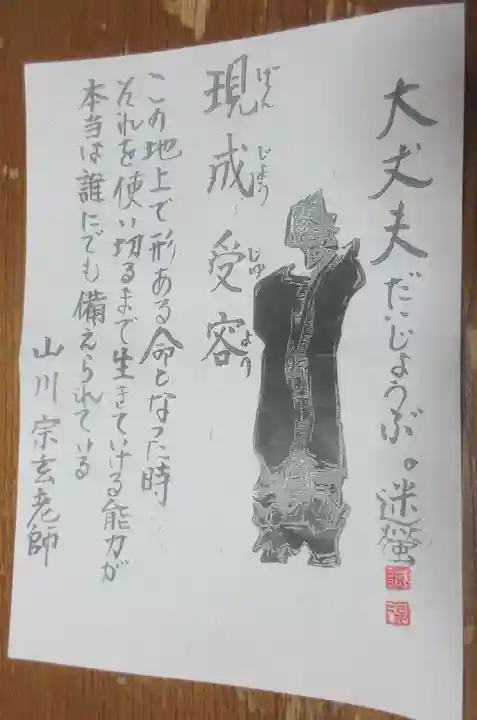 大丈夫だいじょうぶ。迷螢
現成受容
げん じょう じゅ よう
この地上で形ある命となった時
それを使い切るまで生きていける能力が
本当は誰にでも備えられている
山川宗玄老師